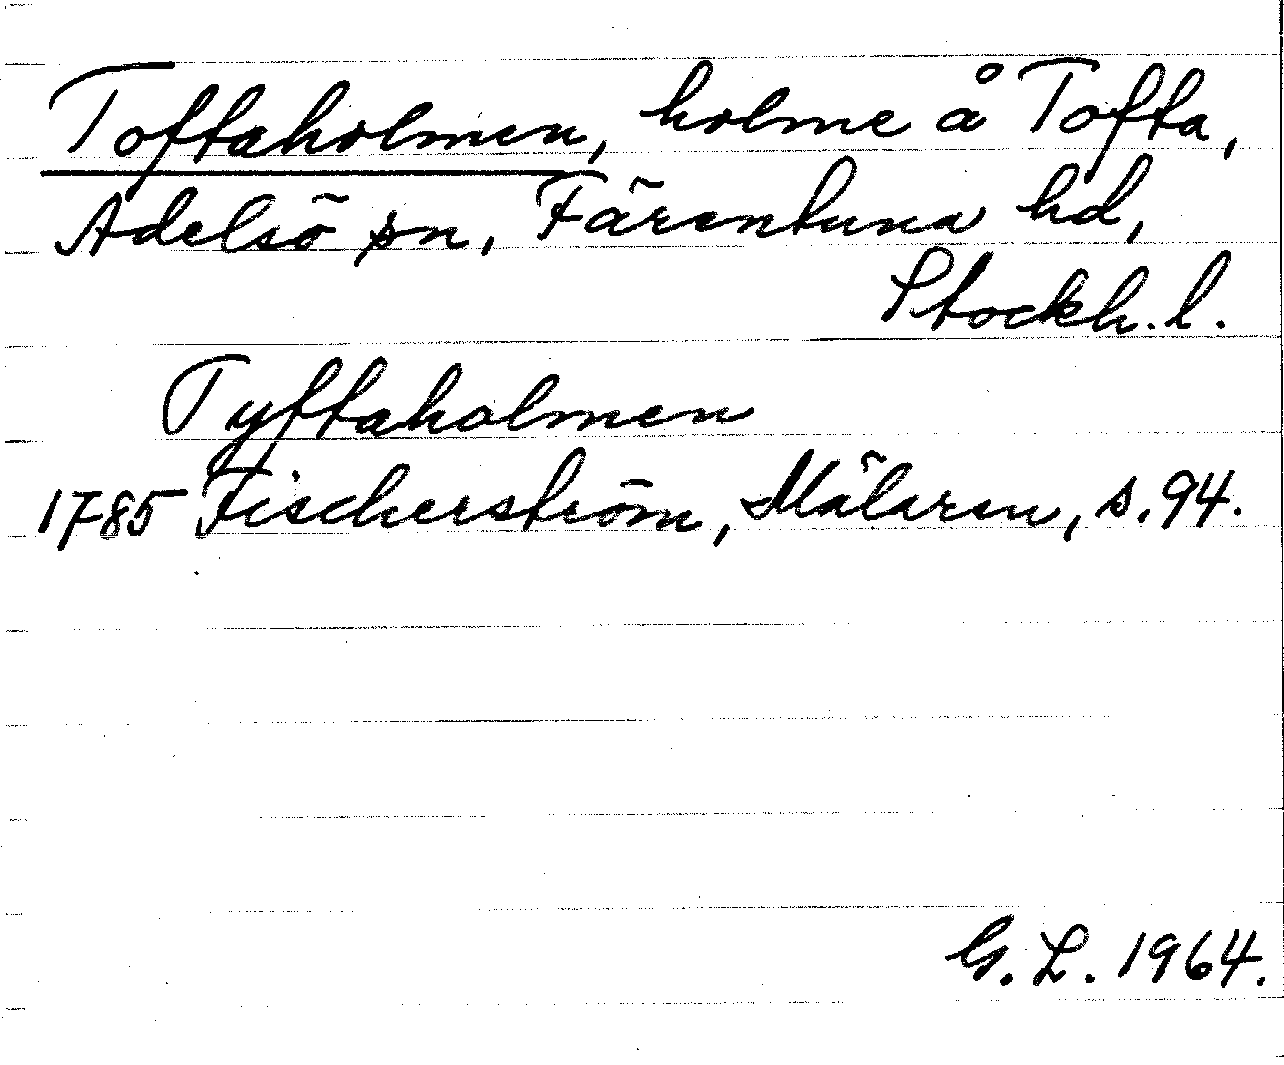 Toftaholmen, holme å Tofta,
Adelsö sn, Färentuna hd,
Stockh. l.
Tyftaholmen
1785 Fischerström, Mälaren, s. 94.
G. L. 1964.